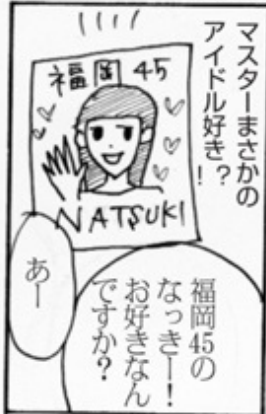 マスターまさかの
アイドル好き!?
福岡 45
NATSUKI
福岡45の
なっきー!
お好きなん
ですか?
あー